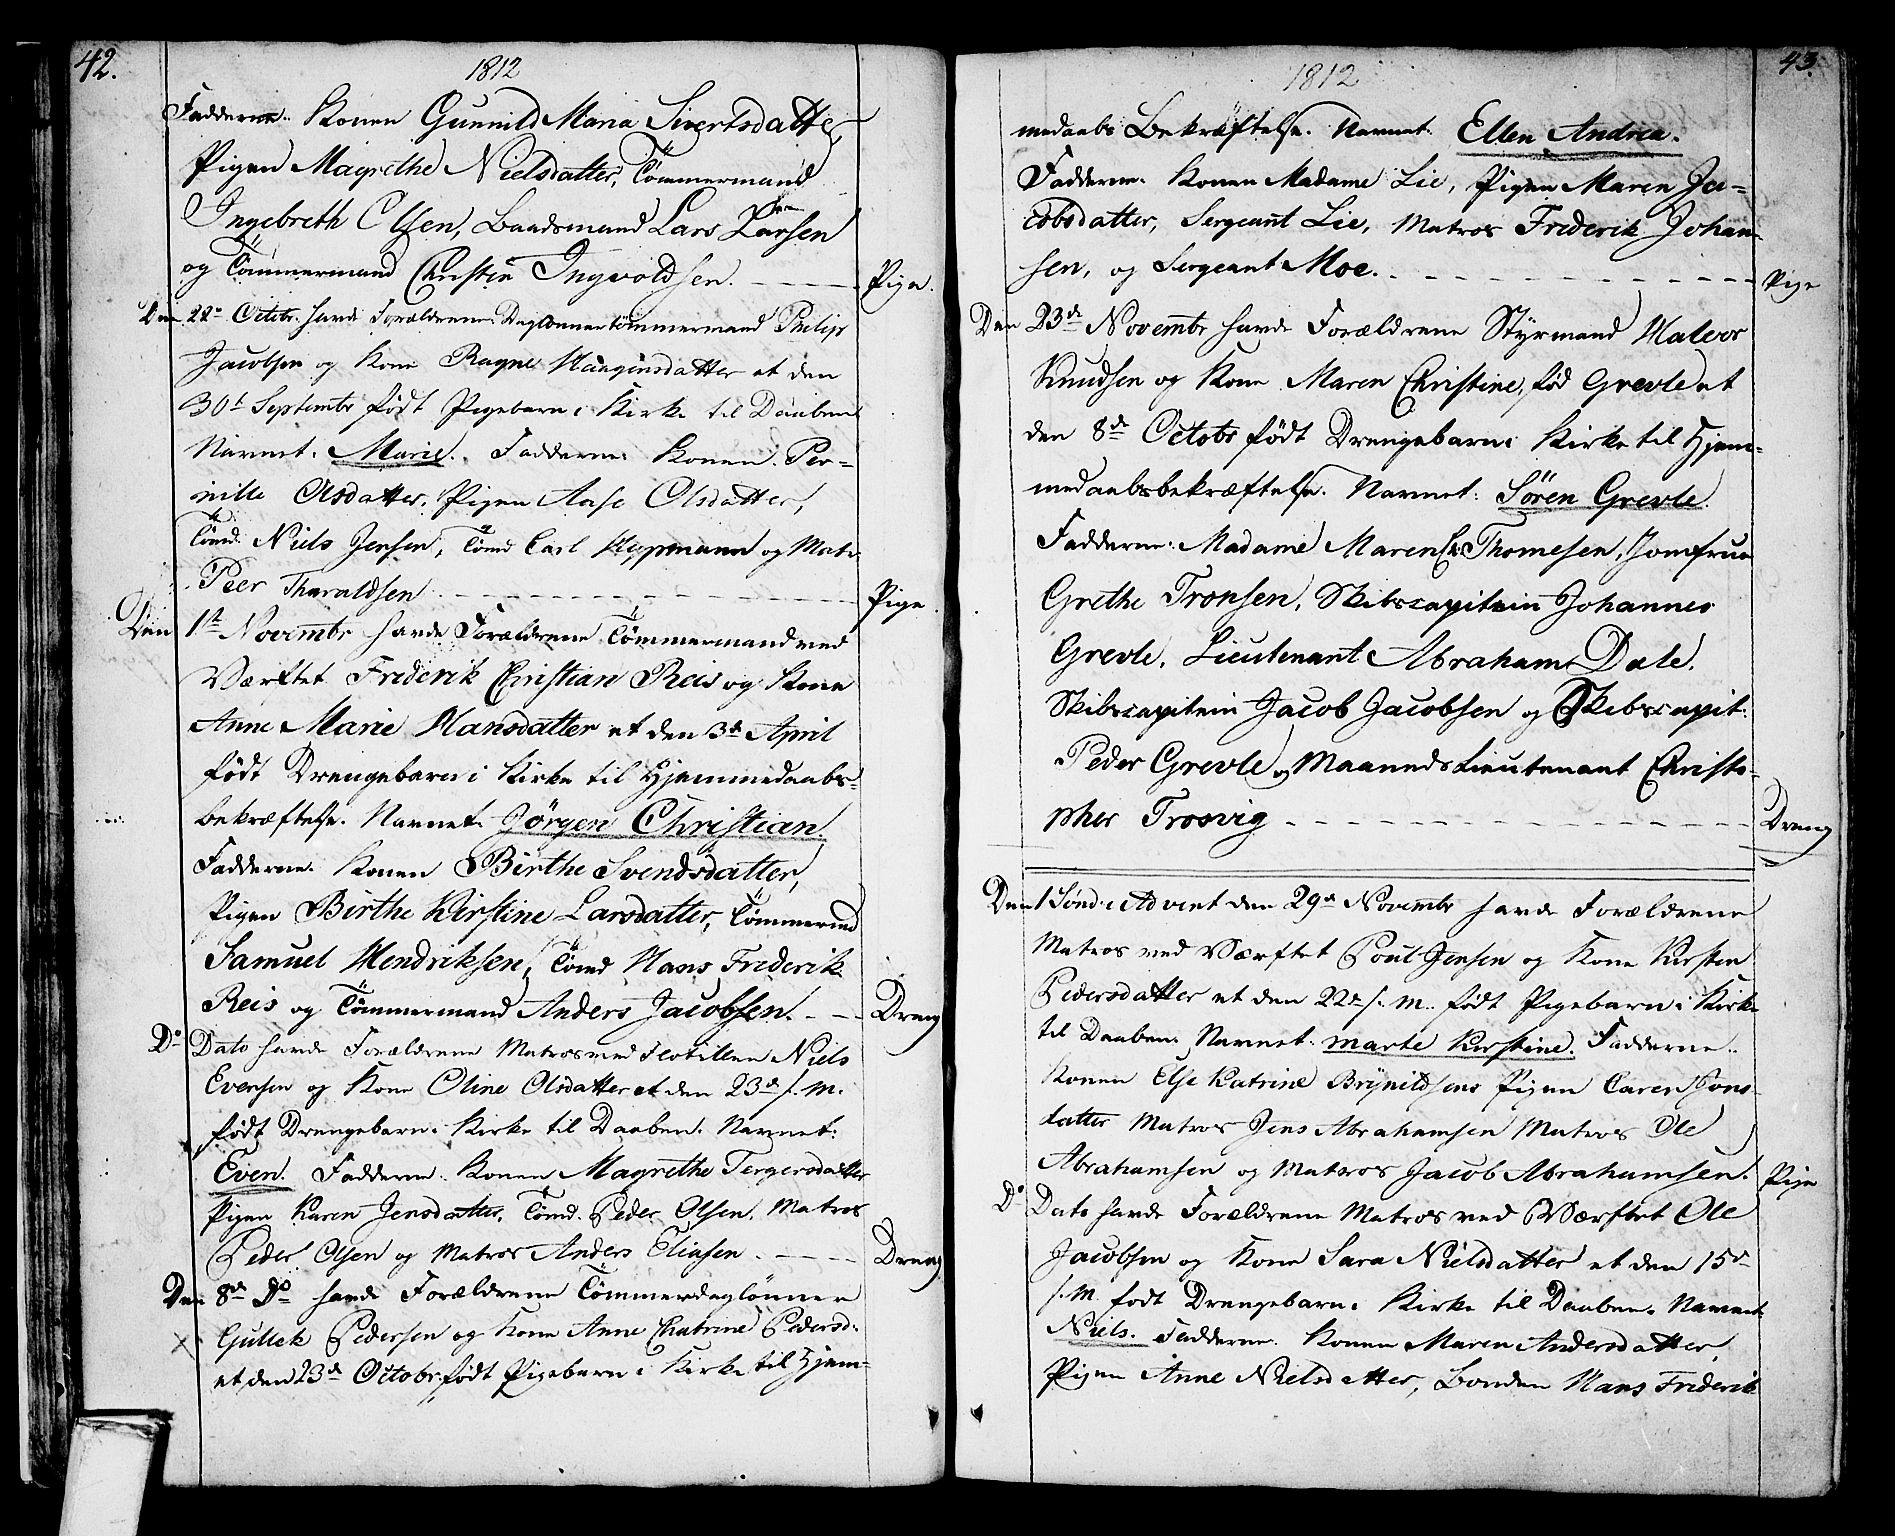 42.
1812
Fadderne. Konen Gunnild Maria Sivertsdatter,
Pigen Magrethe Nielsdatter, Tömmermand
Ingebreth Olsen, Baadsmand Lars Larsen
og Tömmermand Christin Ingvoldsen. Pige.
Den 22de Octobr. havde Forældrene Daglönnertömmermand Philip
Jacobsen og Kone Ragne Haagensdatter et den
30t Septembr født Pigebarn i Kirke til Daaben
Navnet. Marie. Fadderne. Konen Per-
nille Olsdatter, Pigen Aase Olsdatter,
Tömd. Niels Jensen, Tömd Carl Hoppmann og Matr.
Peer Tharaldsen Pige.
Den 1ste Novembr havde Forældrene Tömmermand ved
Værftet Friderik Christian Reis og Kone
Anne Marie Hansdatter et den 3de April
født Drengebarn i Kirke til Hjemmedaabs-
bekræftelse. Navnet. Jörgen Christian.
Fadderne. Konen Birthe Svendsdatter,
Pigen Birthe Kirstine Larsdatter, Tömmermd
Samuel Hendriksen, Tömd Hans Friderik
Reis og Tömmermand Anders Jacobsen. Dreng
Do Dato havde Forældrene Matros ved Flotillen Niels
Evensen og Kone Oline Olsdatter et den 23de f. M.
født Drengebarn i Kirke til Daaben. Navnet:
Even. Fadderne. Konen Magrethe Tergersdatter
Pigen Karen Jensdatter, Tömd. Peder Olsen, Matros
Peder Olsen og Matros Anders Eliasen. Dreng
Den 8de Do havde Forældrene Tömmerdaglönner
Gullek Pedersen og Kone Anne Chatrine Pedersd.
et den 23de Octobr født Pigebarn i Kirke til Hjem-
43.
1812
medaabs Bekræftelse. Navnet. Ellen Andrea.
Fadderne. Konen Madame Lie, Pigen Maren Ja-
cobsdatter, Sergeant Lie, Matros Friderik Johan-
sen, og Sergeant Moe. Pige
Den 23de Novembr havde Forældrene Styrmand Halvor
Knudsen og Kone Maren Christine, fød Grevle et
den 8de Octobr født Drengebarn i Kirke til Hjem-
medaabsbekræftelse. Navnet: Sören Grevle.
Fadderne: Madame Maren Ch: Thomesen, Jomfrue
Grethe Tronsen, Skibscapitein Johannes
Grevle, Lieutenant Abraham Dale,
Skibscapitein Jacob Jacobsen og Skibscapit:
Peder Grevle og Maaneds Lieutenant Christo-
pher Trosvig Dreng
Den 1 Sønd i Advent den 29de Novembr havde Forældrene
Matros ved Værftet Poul Jensen og Kone Kirsten
Pedersdatter et den 22de f. M. født Pigebarn i Kirke
til Daaben. Navnet. Marte Kirstine. Fadderne.
Konen Else Katrine Brynildsens Pigen Caren Jons-
datter Matros Jens Abrahamsen Matros Ole
Abrahamsen og Matros Jacob Abrahamsen. Pige
Do Dato havde Forældrene Matros ved Værftet Ole
Jacobsen og Kone Sara Nielsdatter et den 15de
f. M. født Drengebarn i Kirke til Daaben. Navnet
Niels. Fadderne. Konen Maren Andersdatter,
Pigen Anne Nielsdatter, Bonden Hans Friderik